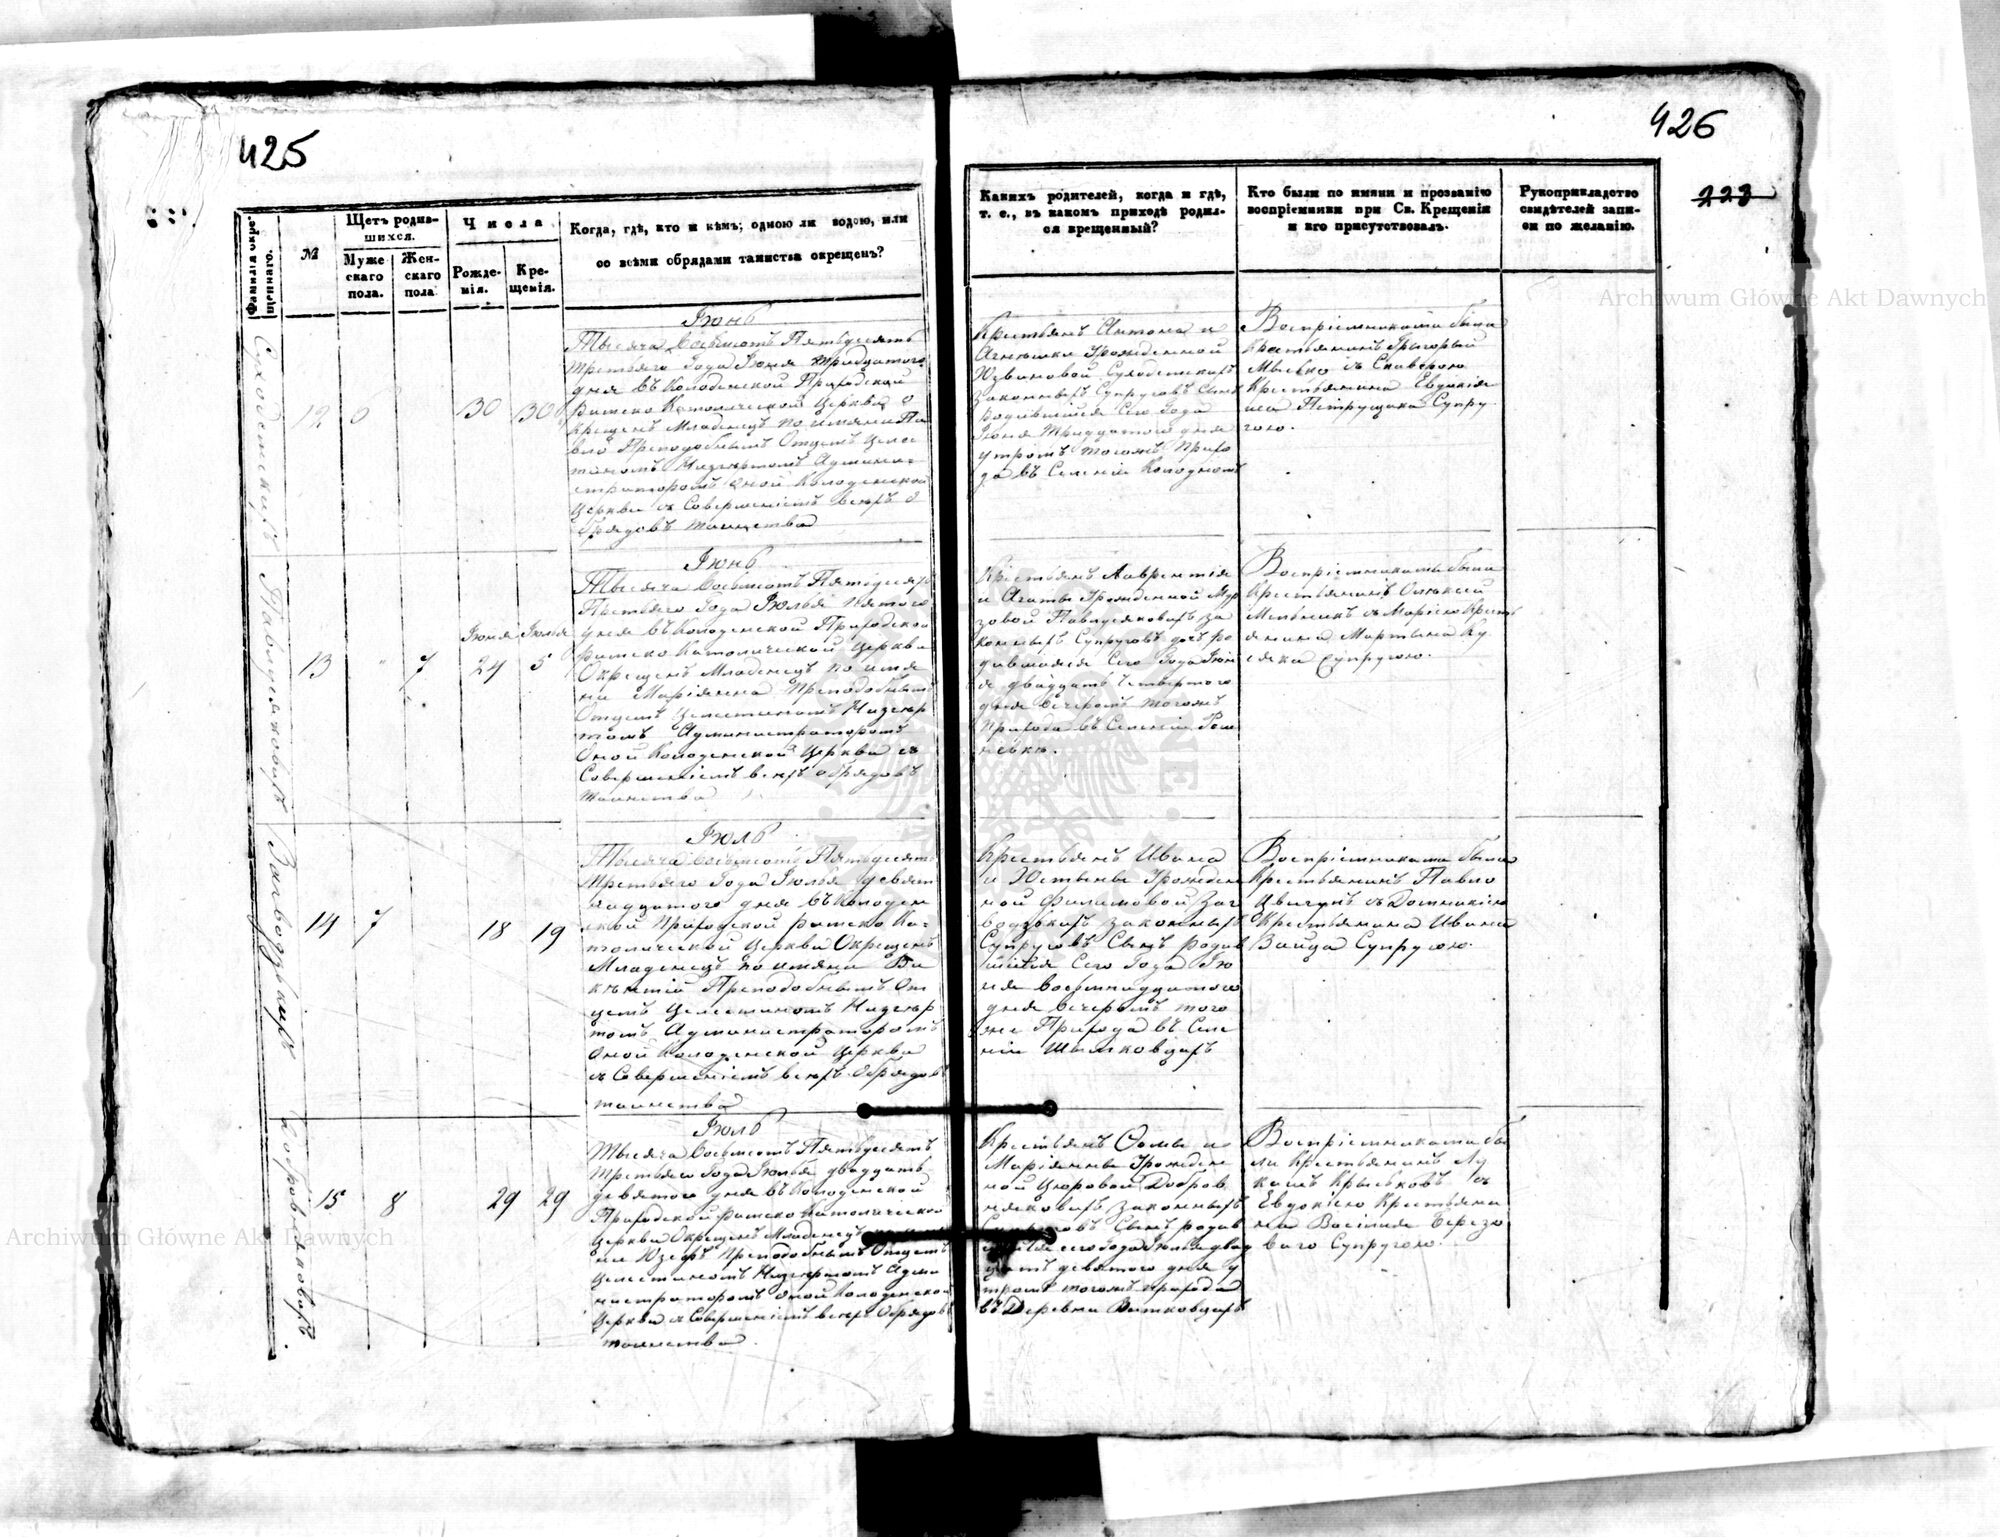 425
Фамилія окре-
щеннаго.
№
Щетъ родив-
шихся.
Муже
скаго
пола.
Жен-
скаго
пола
Числа
Рожде-
нія.
Кре-
щенія.
Когда, гдѣ, кто и кѣмъ; одною ли водою, или
со всѣми обрядами таинства окрещенъ?
12
6
30
30
Іюнь
Тысяча Восемсотъ Пятьдесятъ
третьяго Года Іюня тридцатого
дня въ Колоденской Приходской
Римско Католической Церквѣ о
крещенъ Младенецъ по имяни Па
велъ Преподобнымъ Отцемъ Целес
тиномъ Администраторомъ
оной Колоденской
Церкви съ Совершеніемъ всехъ о
брядовъ таинства
Павлусяковыхъ
13
"
7
Іюня
24
Іюля
5
Іюнь
Тысяча Восемсотъ Пятьдесятъ
Третьяго Года Іюлья пятого
дня въ Колоденской Приходской
Римско Католической Церкви
Окрещенъ Младенецъ по имя
ни Маріянна Преподобнымъ
Отцемъ Целестиномъ
Администраторомъ
Оной Колоденской Церкви съ
Совершеніемъ всехъ обрядовъ
таинства
14
7
18
19
Іюль
Тысяча Восемсотъ Пятьдесятъ
третьяго Года Іюлья девят
надцатого дня въ Колоден
ской Приходской Римско Ка-
толической Церкви Окрещенъ
Младенецъ по имяни Ви
кентій Преподобнымъ От
цемъ Целестиномъ
Администраторомъ
Оной Колоденской Церкви
съ Совершеніемъ всехъ Обрядовъ
таинства
15
8
29
29
Іюль
Тысяча Восемсотъ Пятьдесятъ
Третьяго Года Іюлья двадцать
девятого дня въ Колоденской
Приходской Римско Католической
Церкви Окрещенъ Младенецъ
Юзефъ Преподобнымъ Отцемъ
Целестиномъ Адми
нистраторомъ оной Колоденской
Церкви съ Совершеніемъ всехъ Обрядовъ
таинства.
426
223
Какихъ родителей, когда и гдѣ,
т. е., въ какомъ приходѣ родил-
ся крещенный?
Кто были по имяни и прозванію
воспріемники при Св. Крещеніи
и кто присутствовалъ.
Рукоприкладство
свидѣтелей запи-
си по желанію.
Крестьянъ Антона и
Агнешки Урожденной
законныхъ Супруговъ Сынъ
родившійся Сего Года
Іюня Тридцатого дня
утромъ тогожъ Прихо
да въ Селеніи Колодномъ
Воспріемниками были
Крестьянинъ Григорый
Крестьянина Евдокія
Петрущака Супру
гою.
Крестьянъ Лаврентія
и Агаты Урожденной Мур
зовой Павлусяковыхъ за
конныхъ Супруговъ дочь ро
дившаяся Сего Года Іюн
я двадцать четвертого
дня вечеромъ тогожъ
Прихода въ Селеніи Рош
невкѣ.
Воспріемниками были
Крестьянинъ Олексей
Мельникъ съ Маріею Кресть
янина Мартына Ку
сяка Супругою.
Крестьянъ Ивана
и Юстыны Урожден
ной Филимовой Заг
водзкихъ законныхъ
Супруговъ Сынъ родив
шійся Сего Года Ію
ля Восемнадцатого
дня вечеромъ того
же Прихода въ Селе
ніи Шымковцахъ
Воспріемниками были
Крестьянинъ Павло
Цвигунъ съ Домникіею
Крестьянина Ивана
Зайца Супругою.
Крестьянъ Фомы и
Маріянны Урожден
ной Цюровой Добров
няковыхъ законныхъ
Супруговъ Сынъ родив
шійся сего Года Іюлья двад
цать девятого дня у
тромъ тогожъ прихода
въ Деревни Витковцахъ
Воспріемниками бы
ли Крестьянинъ Лу
кашъ Крыськовъ съ
Евдокіею Крестьяни
на Василія Березо
ваго Супругою.
Archiwum Główne Akt Dawnych
Archiwum Główne Akt Dawnych